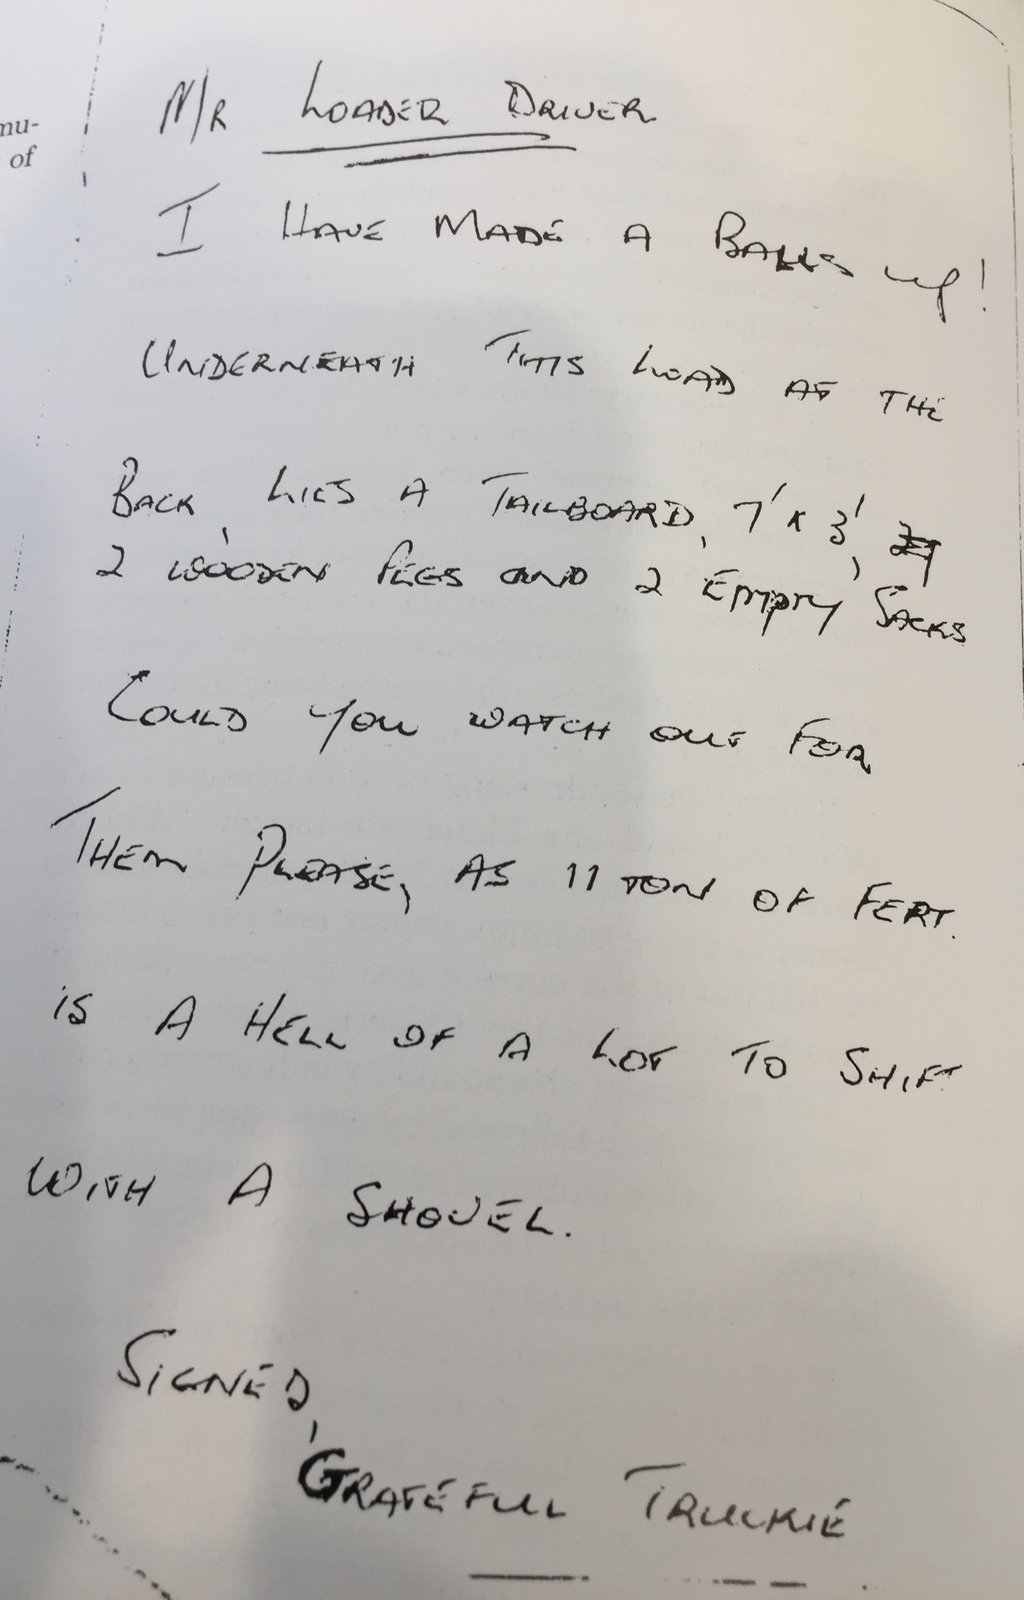 mu-
of
M/R LOADER DRIVER
I HAVE MADE A BALLS UP!
UNDERNEATH THIS LOAD AT THE
BACK, LIES A TAILBOARD, 7' x 3',
2 WOODEN PEGS AND 2 EMPTY SACKS
COULD YOU WATCH OUT FOR
THEM PLEASE, AS 11 TON OF FERT.
IS A HELL OF A LOT TO SHIFT
WITH A SHOVEL.
SIGNED,
GRATEFUL TRUCKIE